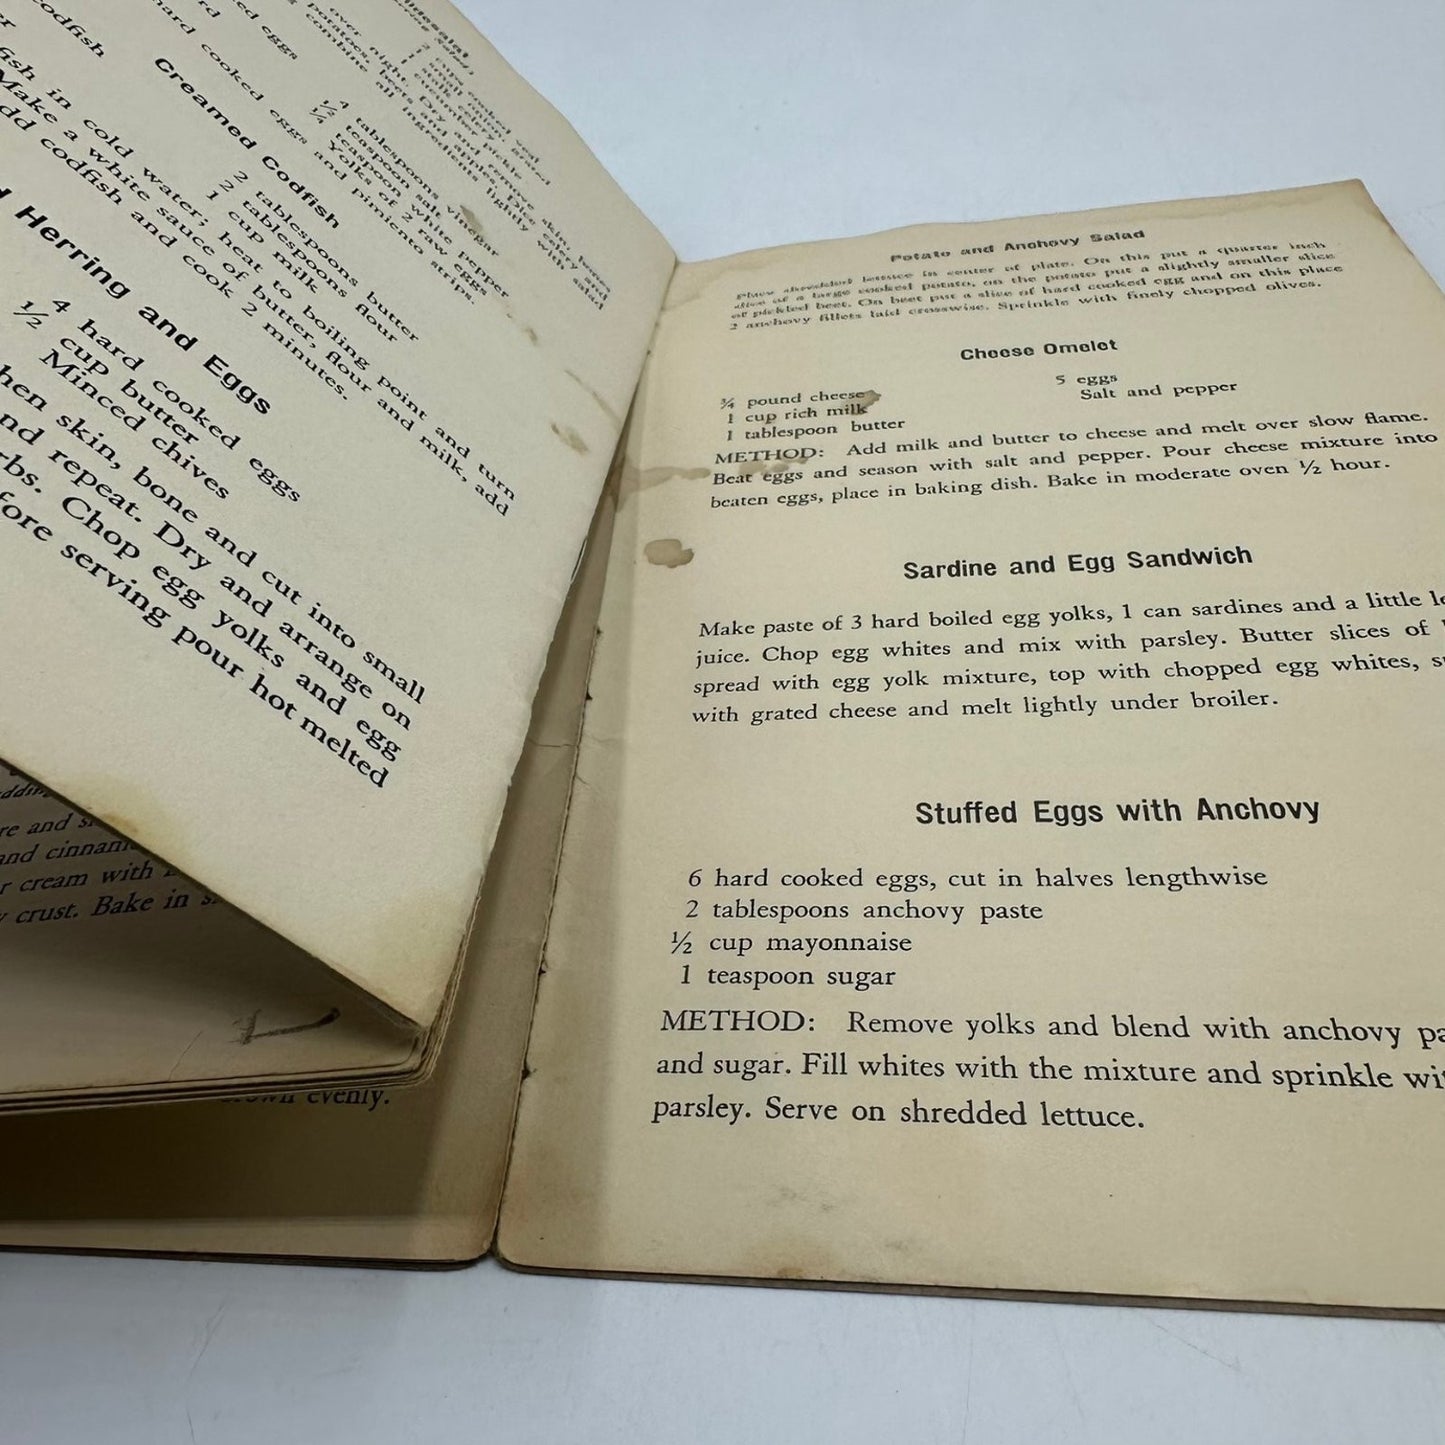 2 cups cooked veal
1 small onion, grated
1 stalk celery
1 cucumber pickle
over night. Dry and remove skin, bones
potatoes, beets and apples. Dice celery and
combine all ingredients lightly with salad
4 tablespoons vinegar
½ teaspoon salt
¼ teaspoon white pepper
Yolks of 2 raw eggs
hard cooked eggs and pimiento strips.
codfish
Creamed Codfish
2 tablespoons butter
2 tablespoons flour
1 cup milk
fish in cold water; heat to boiling point and turn
Make a white sauce of butter, flour and milk, add
codfish and cook 2 minutes.
Herring and Eggs
4 hard cooked eggs
½ cup butter
Minced chives
skin, bone and cut into small
and repeat. Dry and arrange on
Chop egg yolks and egg
serving pour hot melted
re and
and
r cream with
crust. Bake in
evenly.
Potato and Anchovy Salad
Place shredded lettuce in center of plate. On this put a quarter inch
slice of a large cooked potato, on the potato put a slightly smaller slice
of pickled beet. On beet put a slice of hard cooked egg and on this place
2 anchovy fillets laid crosswise. Sprinkle with finely chopped olives.
Cheese Omelet
¾ pound cheese
1 cup rich milk
1 tablespoon butter
5 eggs
Salt and pepper
METHOD: Add milk and butter to cheese and melt over slow flame.
Beat eggs and season with salt and pepper. Pour cheese mixture into
beaten eggs, place in baking dish. Bake in moderate oven ½ hour.
Sardine and Egg Sandwich
Make paste of 3 hard boiled egg yolks, 1 can sardines and a little le
juice. Chop egg whites and mix with parsley. Butter slices of
spread with egg yolk mixture, top with chopped egg whites, s
with grated cheese and melt lightly under broiler.
Stuffed Eggs with Anchovy
6 hard cooked eggs, cut in halves lengthwise
2 tablespoons anchovy paste
½ cup mayonnaise
1 teaspoon sugar
METHOD: Remove yolks and blend with anchovy pa
and sugar. Fill whites with the mixture and sprinkle wi
parsley. Serve on shredded lettuce.